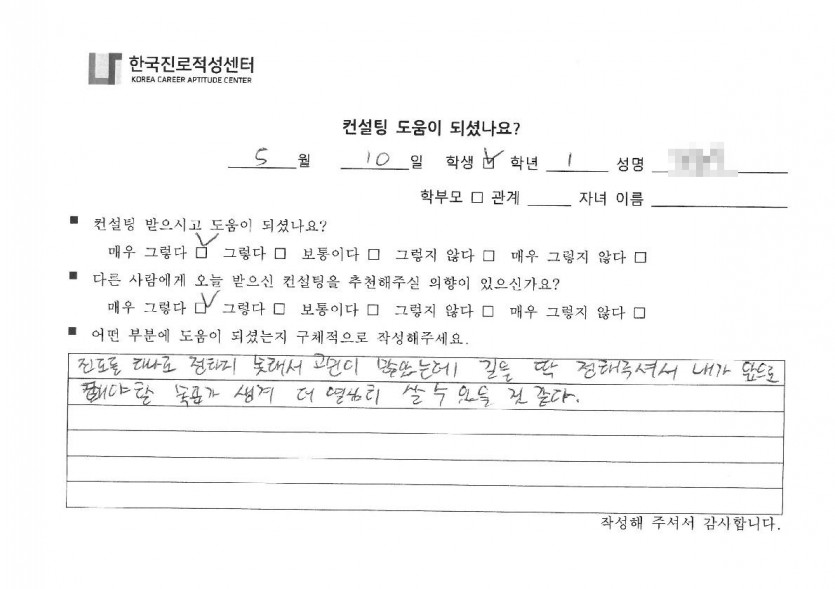 한국진로적성센터
KOREA CAREER APTITUDE CENTER
컨설팅 도움이 되셨나요?
5 월 10 일 학생 ☑ 학년 1 성명
학부모 □ 관계 자녀 이름
■ 컨설팅 받으시고 도움이 되셨나요?
매우 그렇다 ☑ 그렇다 □ 보통이다 □ 그렇지 않다 □ 매우 그렇지 않다 □
■ 다른 사람에게 오늘 받으신 컨설팅을 추천해주실 의향이 있으신가요?
매우 그렇다 ☑ 그렇다 □ 보통이다 □ 그렇지 않다 □ 매우 그렇지 않다 □
■ 어떤 부분에 도움이 되셨는지 구체적으로 작성해주세요.
진로를 정하지 못해서 고민이 많았는데 길을 딱 정해주셔서 내가 앞으로
해야할 목표가 생겨 더 열심히 살 수 있을 것 같다.
작성해 주셔서 감사합니다.